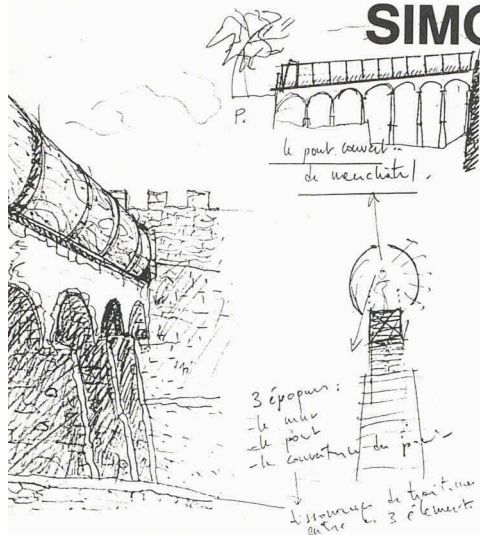 SIMO
P.
le pont couvert
de neuchâtel.
3 époques :
- le mur
- le pont
- la couverture du pont
dissonance de
entre les 3 éléments